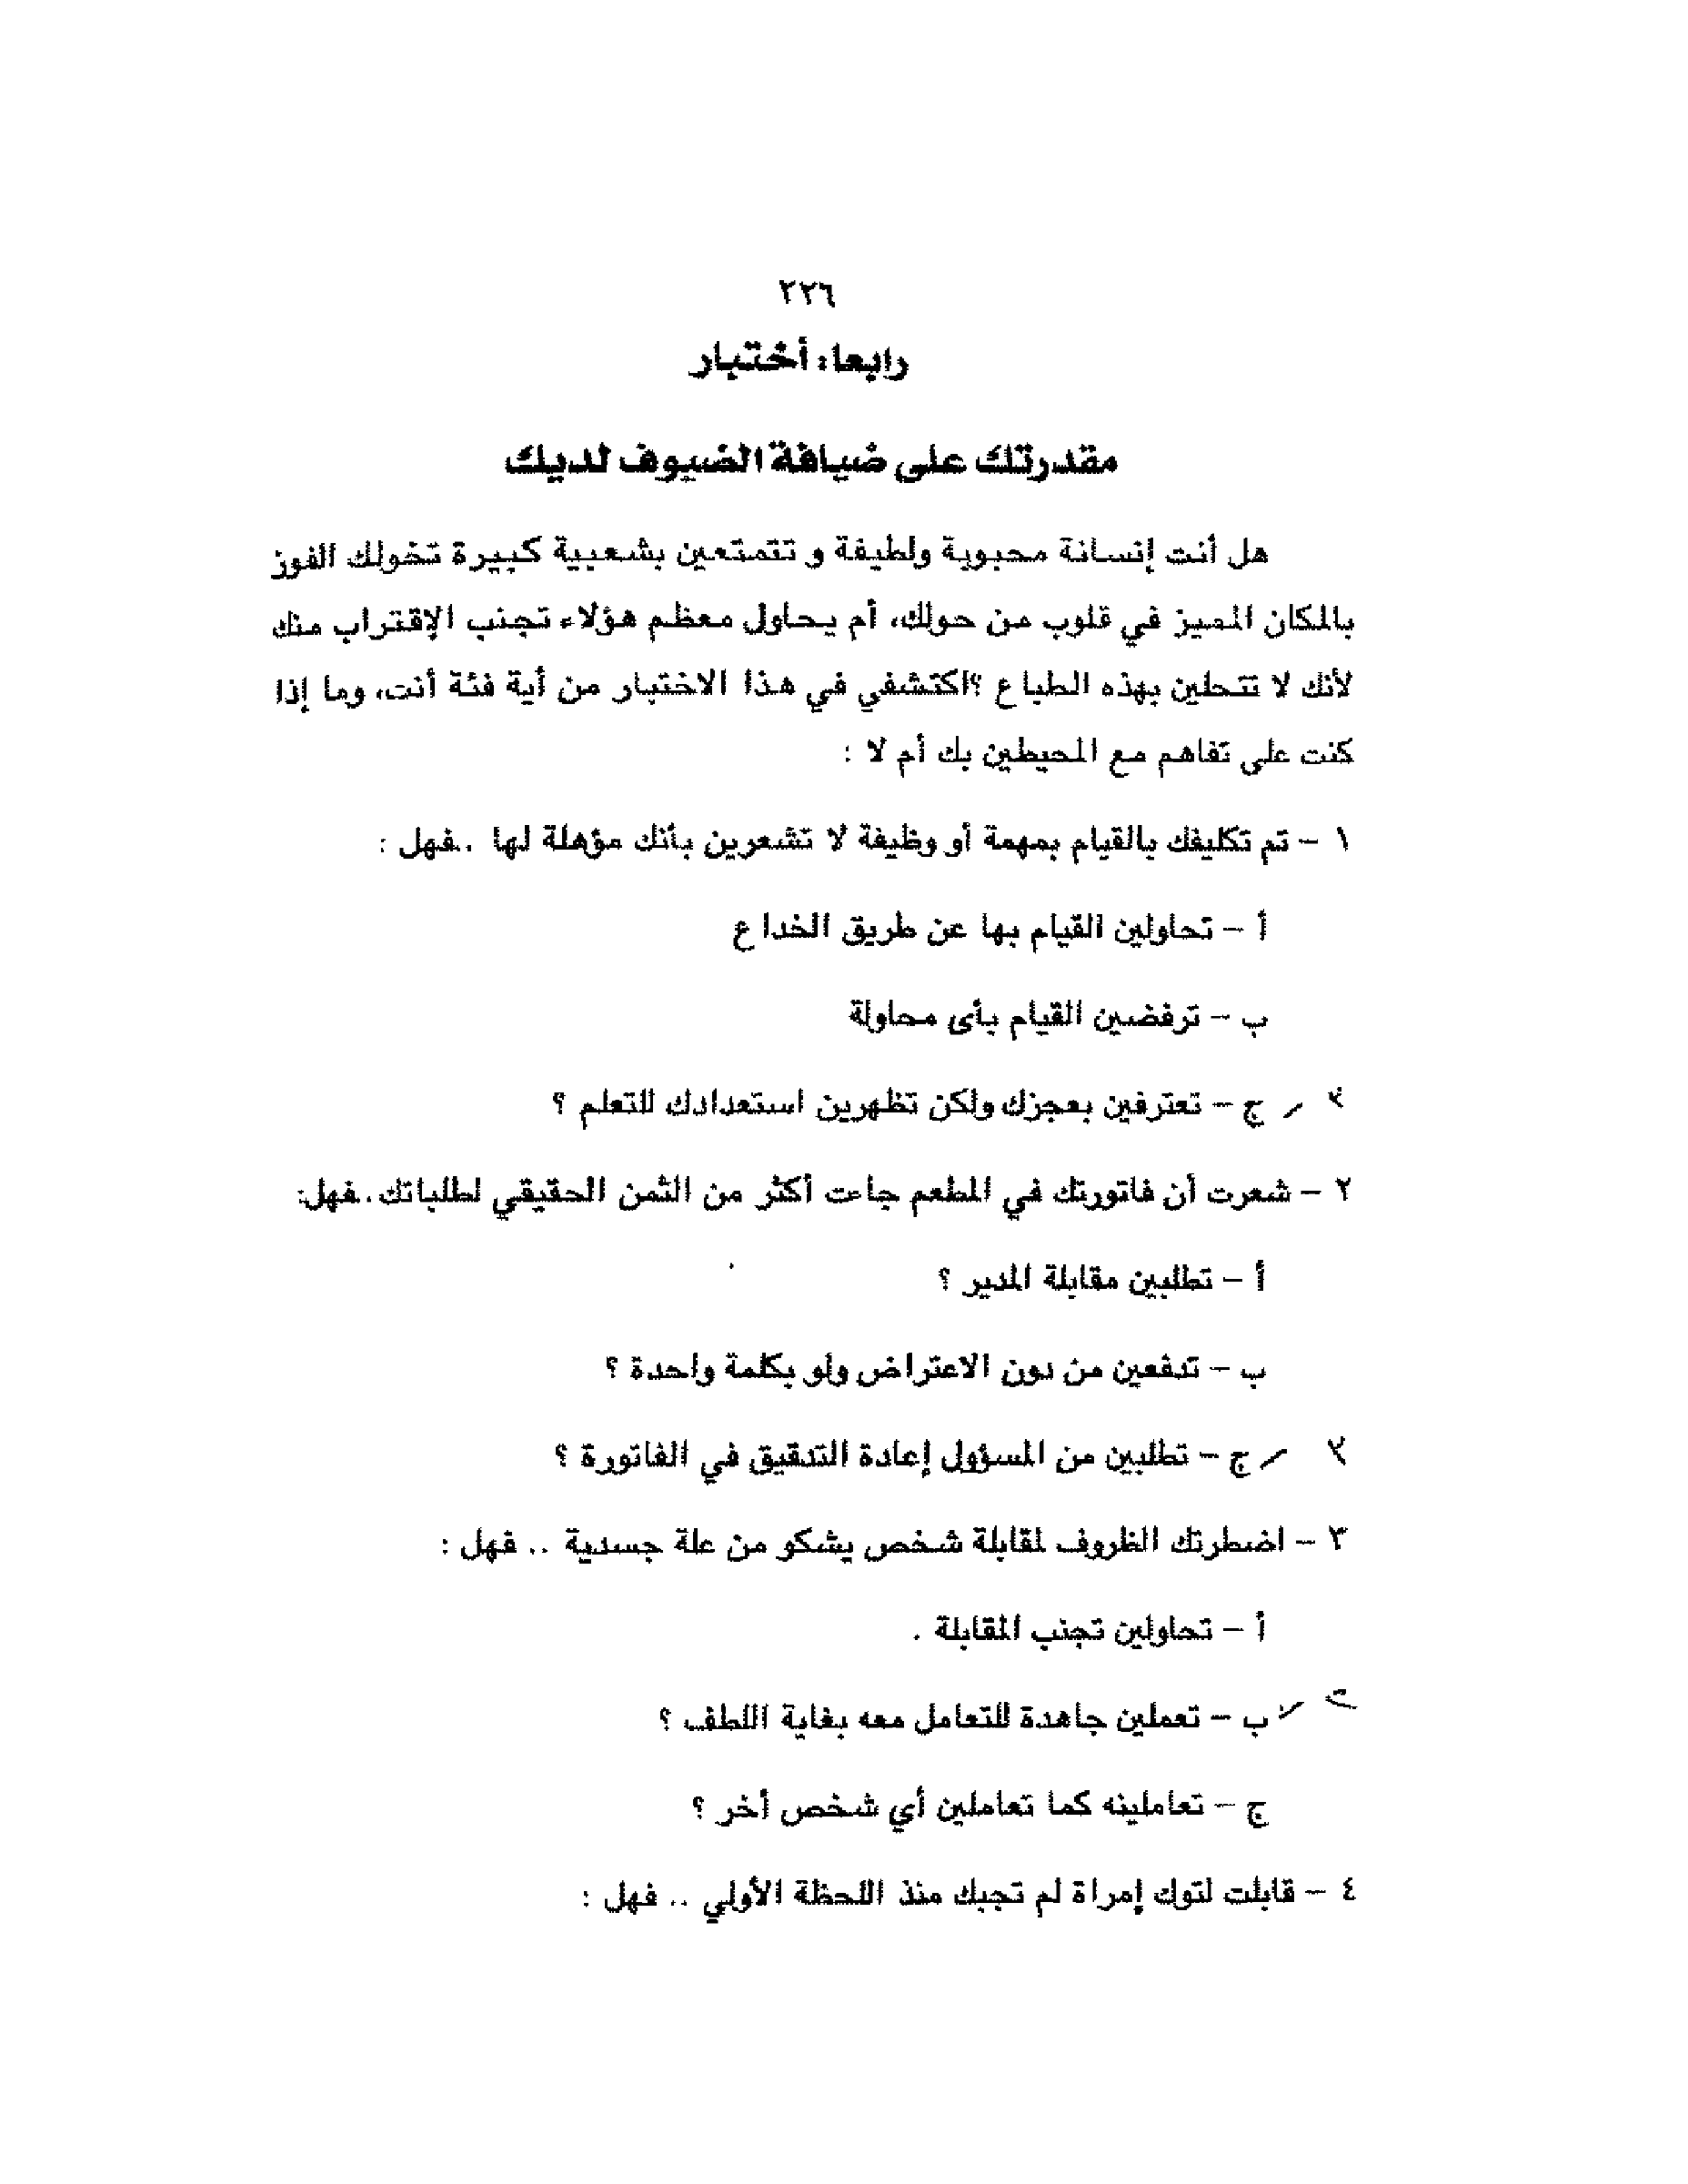 ٢٢٦
رابعا: أختبار
مقدرتك على ضيافة الضيوف لديك
هل أنت إنسانة محبوبة ولطيفة و تتمتعين بشعبية كبيرة تخولك الفوز
بالمكان المميز في قلوب من حولك، أم يحاول معظم هؤلاء تجنب الإقتراب منك
لأنك لا تتحلين بهذه الطباع ؟اكتشفي في هذا الاختبار من أية فئة أنت، وما إذا
كنت على تفاهم مع المحيطين بك أم لا :
١ – تم تكليفك بالقيام بمهمة أو وظيفة لا تشعرين بأنك مؤهلة لها ..فهل :
أ – تحاولين القيام بها عن طريق الخداع
ب – ترفضين القيام بأى محاولة
ج – تعترفين بعجزك ولكن تظهرين استعدادك للتعلم ؟
٢ – شعرت أن فاتورتك في المطعم جاءت أكثر من الثمن الحقيقي لطلباتك..فهل:
أ – تطلبين مقابلة المدير ؟
ب – تدفعين من دون الاعتراض ولو بكلمة واحدة ؟
ج – تطلبين من المسؤول إعادة التدقيق في الفاتورة ؟
٣ – اضطرتك الظروف لمقابلة شخص يشكو من علة جسدية .. فهل :
أ – تحاولين تجنب المقابلة .
ب – تعملين جاهدة للتعامل معه بغاية اللطف ؟
ج – تعاملينه كما تعاملين أي شخص أخر ؟
٤ – قابلت لتوك إمراة لم تجبك منذ اللحظة الأولي .. فهل :